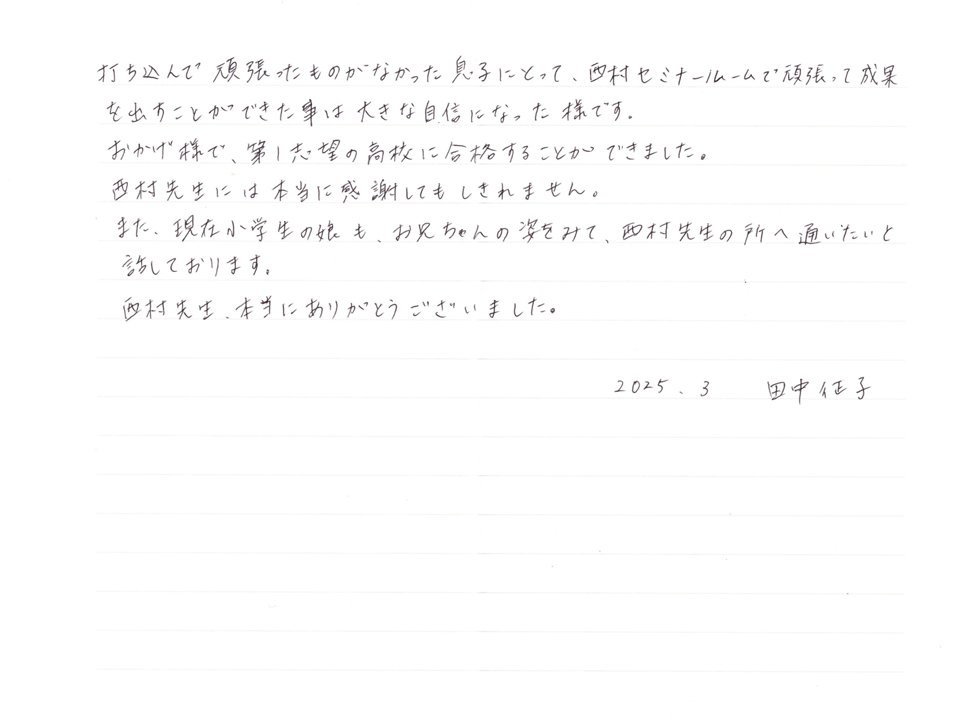 打ち込んで頑張ったものがなかった息子にとって、西村セミナールームで頑張って成果
を出すことができた事は大きな自信になった様です。
おかげ様で、第1志望の高校に合格することができました。
西村先生には本当に感謝してもしきれません。
また、現在小学生の娘も、お兄ちゃんの姿をみて、西村先生の所へ通いたいと
話しております。
西村先生、本当にありがとうございました。
2025.3 田中征子